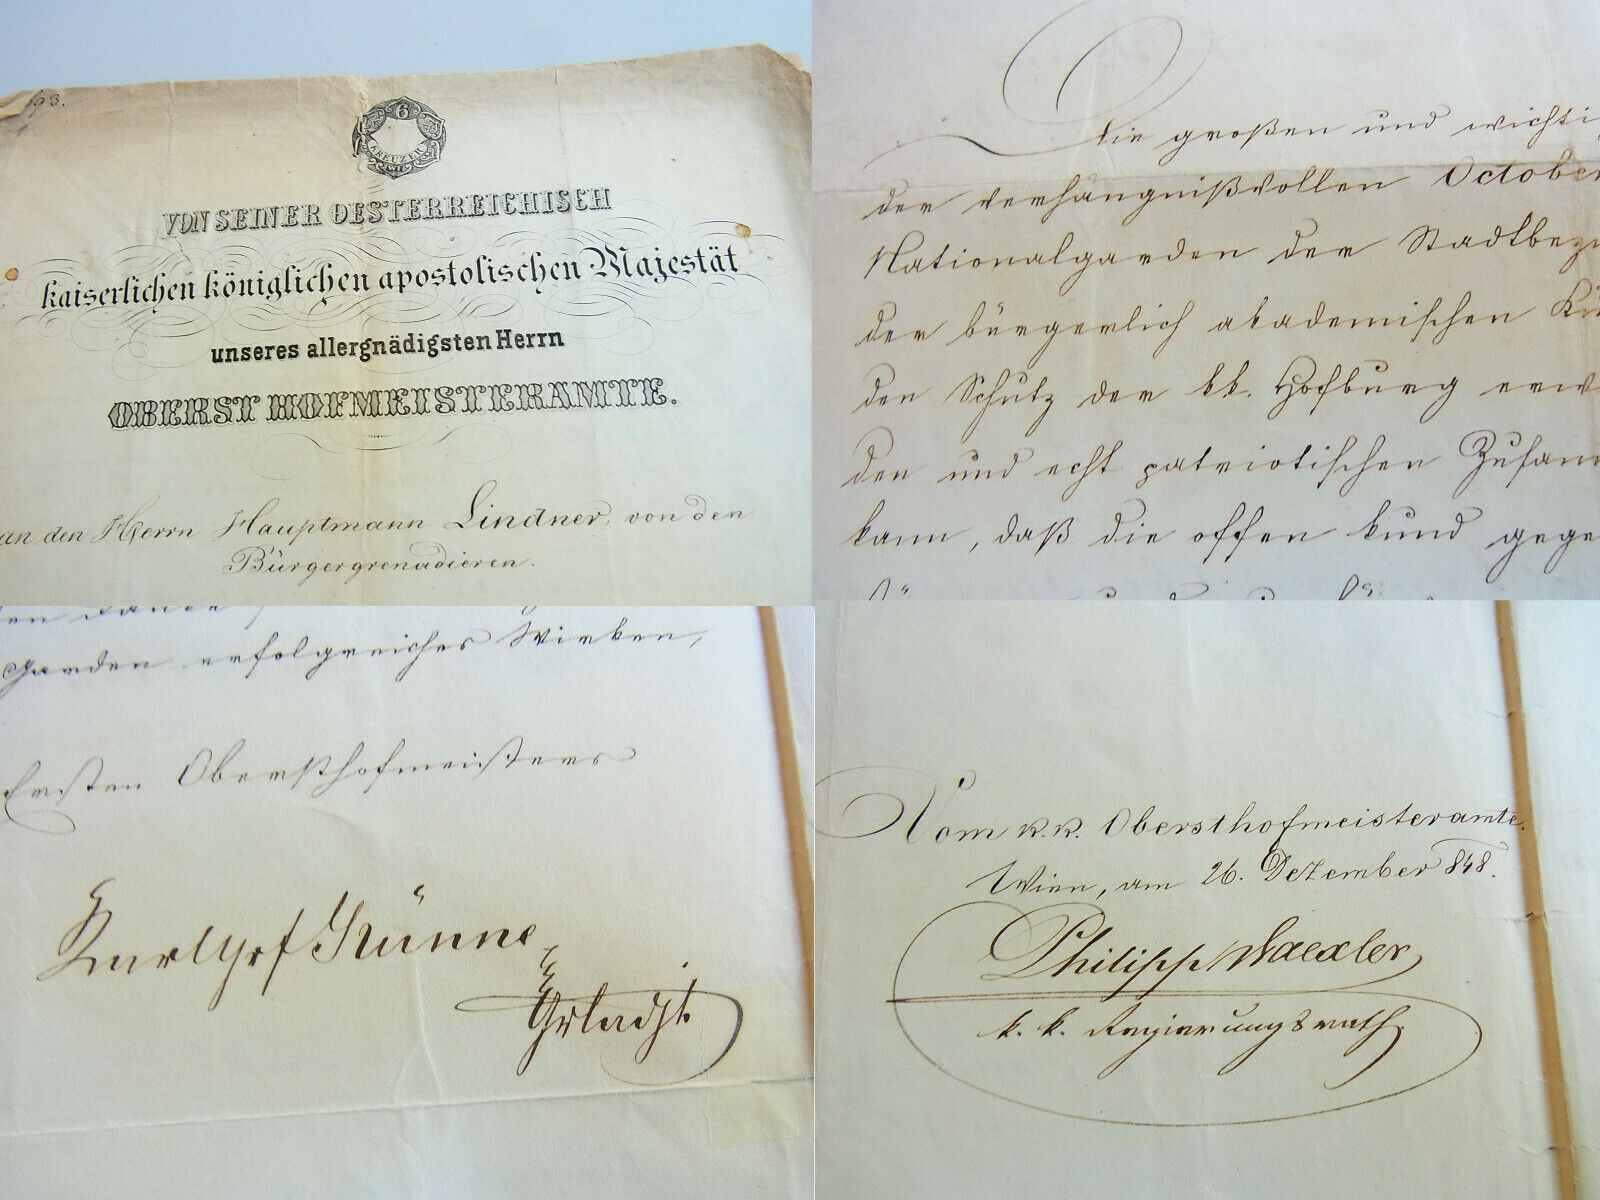 6
KREUZER
VON SEINER OESTERREICHISCH
kaiserlichen königlichen apostolischen Majestät
unseres allergnädigsten Herrn
OBERST HOFMEISTERAMTE.
an den Herrn Hauptmann Lindner, von den
Bürgergrenadieren.
Die großen und wichti
der verhängnißvollen October
Nationalgarden der Stadtbez
der bürgerlich akademischen Kü
den Schutz der kk. Hofburg erw
den und echt patriotischen Zusam
kann, daß die offen kund gege
Garden erfolgreiches Wirken,
Ersten Obersthofmeisters
Karl Grf Grünne
Erlacht
Vom k.k. Obersthofmeisteramte.
Wien, am 26. Dezember 848.
Philipp Waexler
k. k. Regierungsrath